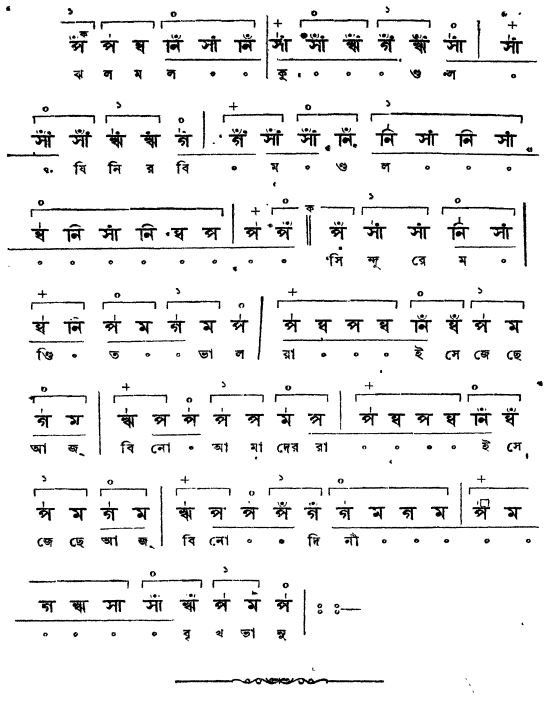 ১ ০ + ০ ১ ০ +
প ক প ধ নি সা নি | সা সা ঋ গ ঋ সা | সা
ঝ ল ম ল ০ ০ কু ০ ০ ০ ণ্ড ল ০
০ ১ ০ + ০ ১
সা সা ঋ ঋ গ | গ সা সা নি নি সা নি সা
০ যি নি র বি ০ ম ০ ণ্ড ল ০ ০ ০
০ + ০ ক ১ ০
ধ নি সা নি ধ প | প প || প সা সা নি সা |
০ ০ ০ ০ ০ ০ ০ ০ সি ন্দূ রে ম ০
+ ০ ১ ০ + ০ ১
ধ নি প ম গ ম প | প ধ প ধ নি ধ প ম
ণ্ডি ০ ত ০ ০ ভা ল রা ০ ০ ০ ই সে জে ছে
০ + ০ ১ ০ + ০
গ ম | ঋ প প প প ম প | প ধ প ধ নি ধ
আ জ্ বি নো ০ আ মা দের রা ০ ০ ০ ০ ই সে
১ ০ + ০ ১ ০ +
প ম গ ম | ঋ প প প গ গ ম গ ম | প ম
জে ছে আ জ্ বি নো ০ ০ দি নী ০ ০ ০ ০ ০
০ ১ ০
গ ঋ সা সা ঋ প ম প | ঃ ঃ—
০ ০ ০ ০ বৃ খ ভা নু